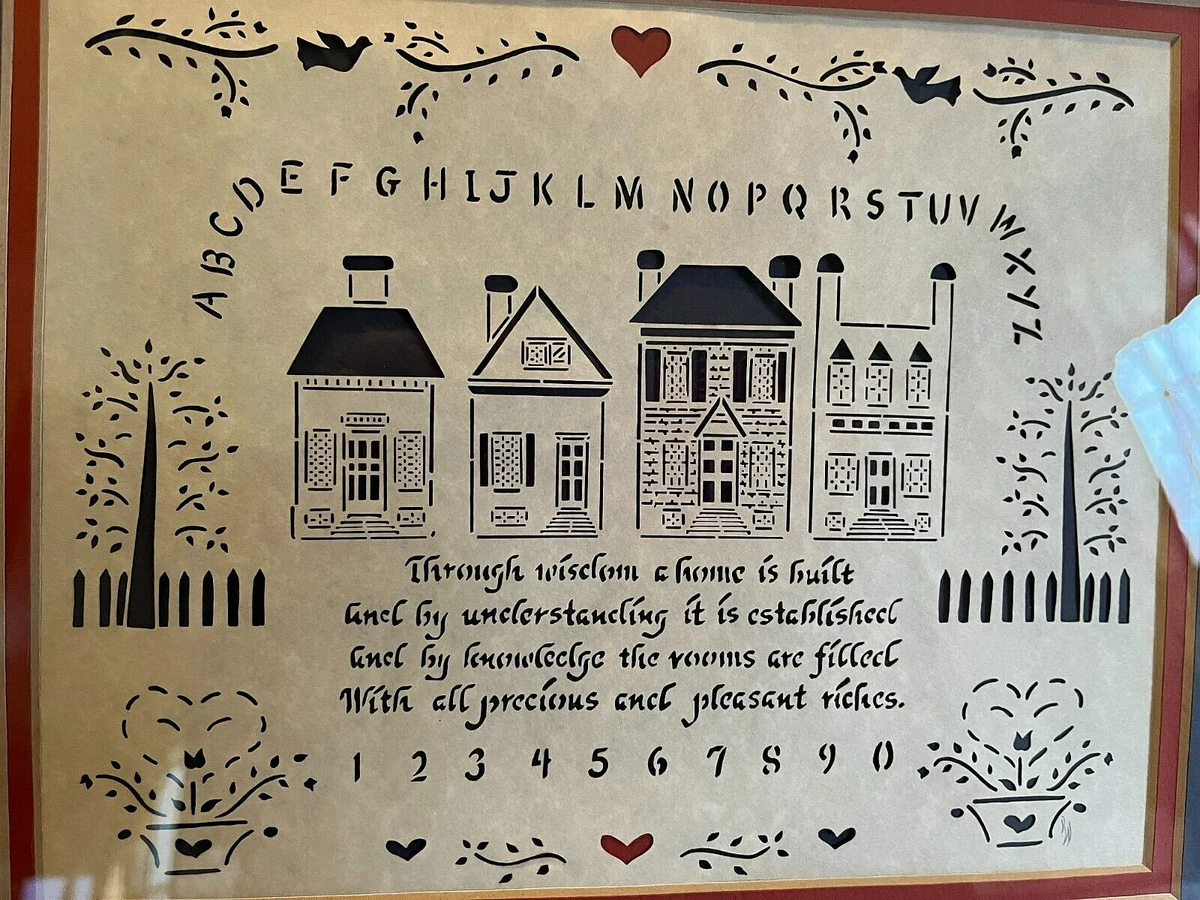 A B C D E F G H I J K L M N O P Q R S T U V W X Y Z
Through wisdom a home is built
and by understanding it is established
and by knowledge the rooms are filled
With all precious and pleasant riches.
1 2 3 4 5 6 7 8 9 0